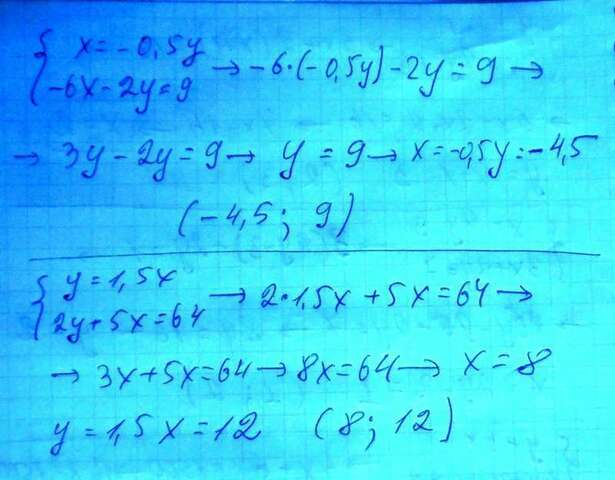 { x = -0,5y
-6x - 2y = 9 → -6·(-0,5y) - 2y = 9 →
→ 3y - 2y = 9 → y = 9 → x = -0,5y = -4,5
(-4,5; 9)
{ y = 1,5x
2y + 5x = 64 → 2·1,5x + 5x = 64 →
→ 3x + 5x = 64 → 8x = 64 → x = 8
y = 1,5x = 12 (8; 12)